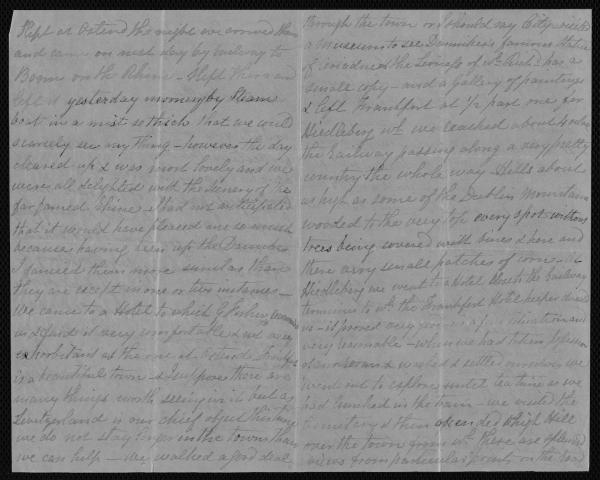 Slept at Ostend the night we arrived there
and came on next day by railway to
Bonn on the Rhine - Slept there and
left it yesterday morning by Steam
boat in a mist so thick that we could
scarcely see any thing - however the day
cleared up & was most lovely and we
were all delighted with the scenery of the
far famed Rhine. I had not anticipated
that it would have pleased me so much
because having been up the Danube
I fancied them more similar than
they are except in one or two instances -
We came to a Hotel to which G
us & found it very comfortable & not as
exhorbitant as the one at Ostend.
is a beautiful town & I suppose there are
many things worth seeing in it but as
Switzerland is our chief object this time
we do not stay longer in the towns than
we can help - We walked a good deal
through the town or I should say City visited
a Museum to see Dannikers famous statue
of the Lioness of wh has a
small copy - and a Gallery of paintings
& left Frankfort at 1/2 past one for
Hiedleberg wh we reached about 4 oclock
the railway passing along a very pretty
country the whole way - Hills about
as high as some of the Dublin Mountains
wooded to the very top every spot without
trees being covered with vines & here and
there very small patches of corn. At
Hiedleberg we went to a Hotel close to the Railway
terminus to wh the Frankfort Hotel keeper
us - it proved very and
very reasonable - when we had taken
of our & washed & settled ourselves we
went out to explore until tea time as we
had lunched in the train - we visited the
Cemetery & then ascended a high Hill
over the town from wh there are splendid
views from particular points on the road